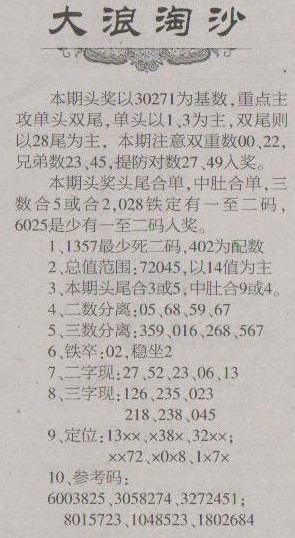 大浪淘沙
本期头奖以30271为基数,重点主
攻单头双尾,单头以1、3为主,双尾则
以28尾为主，本期注意双重数00、22,
兄弟数23、45,提防对数27、49入奖。
本期头奖头尾合单,中肚合单,三
数合5或合2,028铁定有一至二码,
6025是少有一至二码入奖。
1、1357最少死二码,402为配数
2、总值范围:72045,以14值为主
3、本期头尾合3或5,中肚合9或4。
4、二数分离:05、68、59、67
5、三数分离:359、016、268、567
6、铁卒:02,稳坐2
7、二字现:27、52、23、06、13
8、三字现:126、235、023
218、238、045
9、定位:13××、×38×、32××;
××72、×0×8、1×7×
10、参考码:
6003825、3058274、3272451;
8015723、1048523、1802684